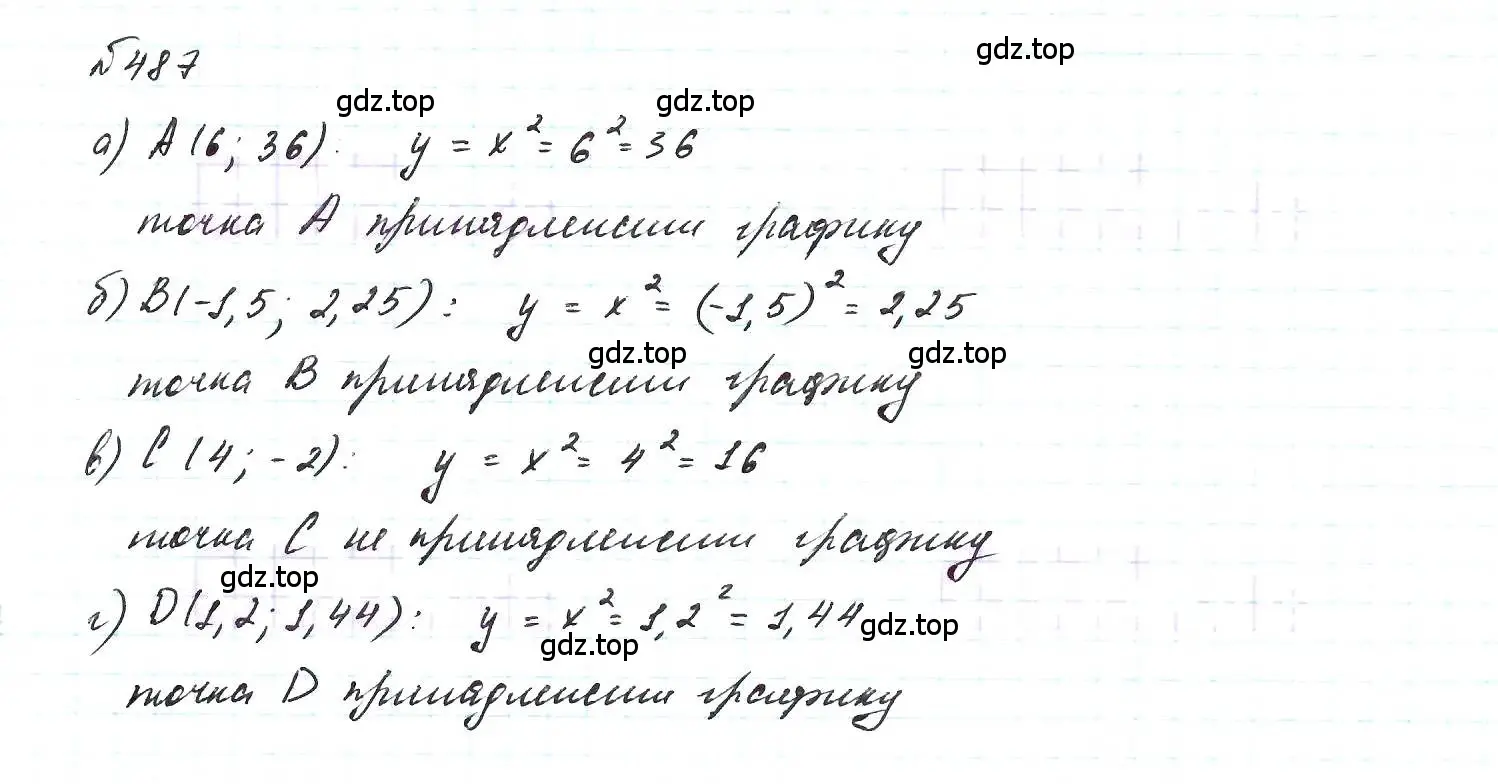 gdz.top
№487
gdz.top gdz.top
а) A(6; 36): y = x² = 6² = 36
точка A принадлежит графику
б) B(-1,5; 2,25): y = x² = (-1,5)² = 2,25
gdz.top gdz.top
точка B принадлежит графику
в) C(4; -2): y = x² = 4² = 16
точка C не принадлежит графику
gdz.top
г) D(1,2; 1,44): y = x² = 1,2² = 1,44 gdz.top
gdz.top
точка D принадлежит графику